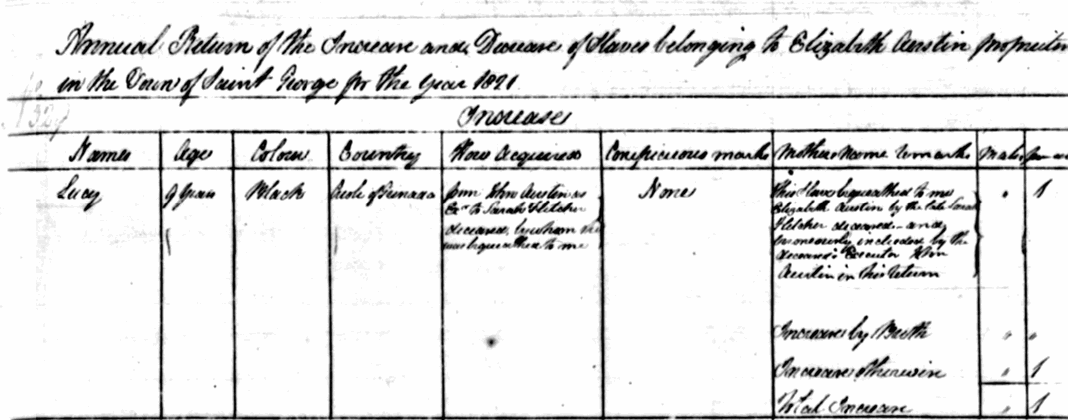 Annual Return of the Increase and Decrease of Slaves belonging to Elizabeth Austin proprietor
in the Town of Saint George for the Year 1821
Increases
Names Age Colour Country How Acquired Conspicuous marks Mothers Name Remarks Males
Lucy 9 Years Black Creole of Grenada from John Austin as Exr to Sarah Fletcher deceased, by whom she was bequeathed to me None This Slave bequeathed to me Elizabeth Austin by the late Sarah Fletcher deceased and erroneously included by the deceased's Executor John Austin in his return " 1
Increase by Birth " "
Increase otherwise " 1
Total Increase " 1